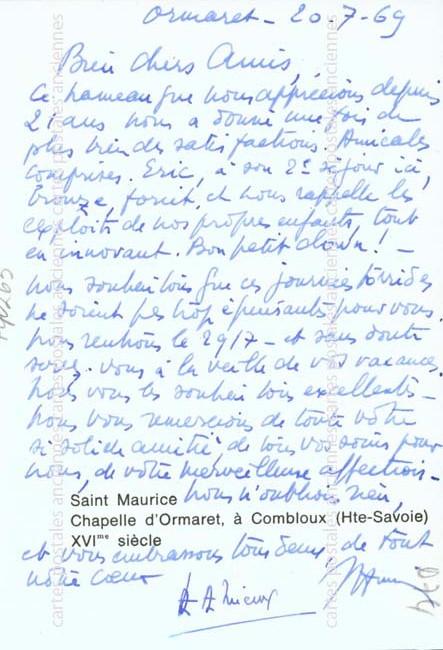 Ormaret - 20-7-69
Bien chers Amis,
Ce hameau que nous apprécions depuis
21 ans nous a donné une fois de
plus bien des satisfactions. Amicales
comprises. Eric, à son 2e séjour ici,
bronze, forcit, et nous rappelle les
exploits de nos propres enfants, tout
en innovant. Bon petit clown! -
Nous souhaitons que ces journées torrides
ne soient pas trop épuisantes pour vous.
Nous rentrons le 29/7 - et sans doute
serez-vous à la veille de vos vacances.
Nous vous les souhaitons excellentes -
Nous vous remercions de toute votre
si solide amitié de tous vos soins pour
nous, de votre merveilleuse affection -
Nous n'oublions rien,
Saint Maurice
Chapelle d'Ormaret, à Combloux (Hte-Savoie)
XVIme siècle
et vous embrassons tous deux, de tout
notre cœur
cartes postales anciennes
cartes postales anciennes